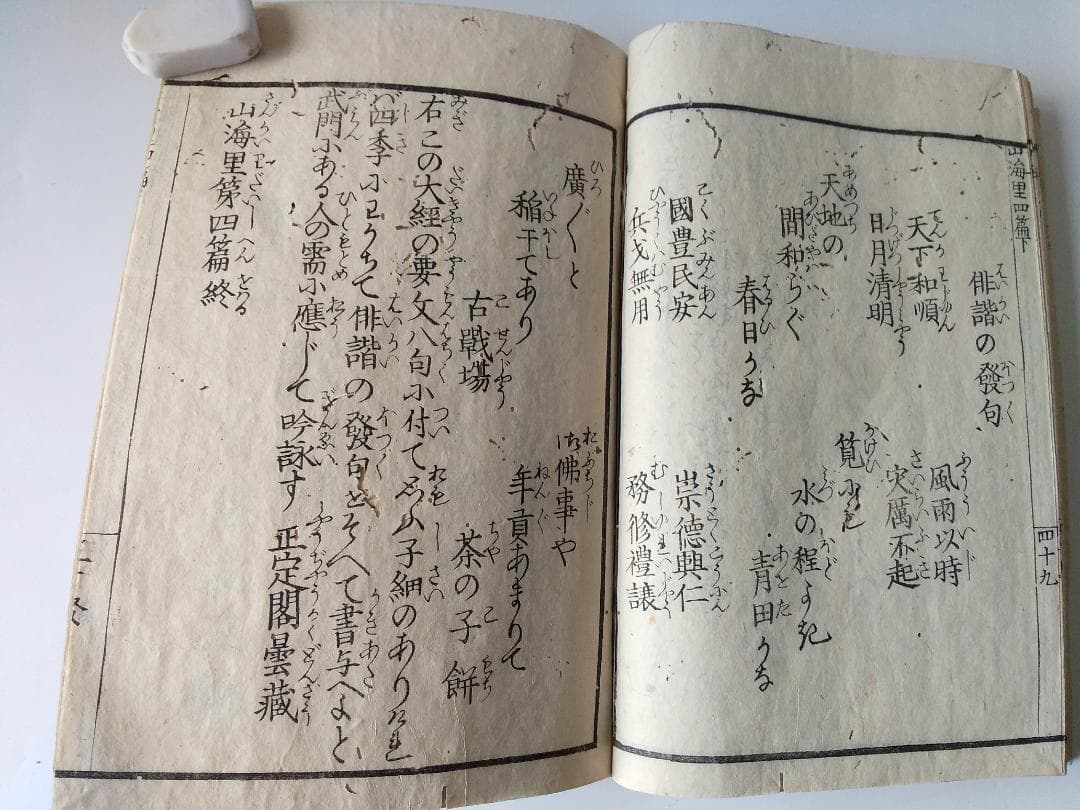 山海里四篇下
四十九
俳諧の發句
天下和順
日月清明
風雨以時
災厲不起
天地の
間和らぐ
春日かな
筧にも
水の程よき
青田かな
國豊民安
兵戈無用
崇德興仁
務修禮讓
廣〲と
稲干てあり
古戰場
御佛事や
年貢あまりて
茶の子餅
右この大經の要文八句に付て思ふ子細のありけれ
バ四季にわかちて俳諧の發句をそへて書与へよと
武門にある人の需に應じて吟詠す 正定閣曇藏
山海里第四篇終